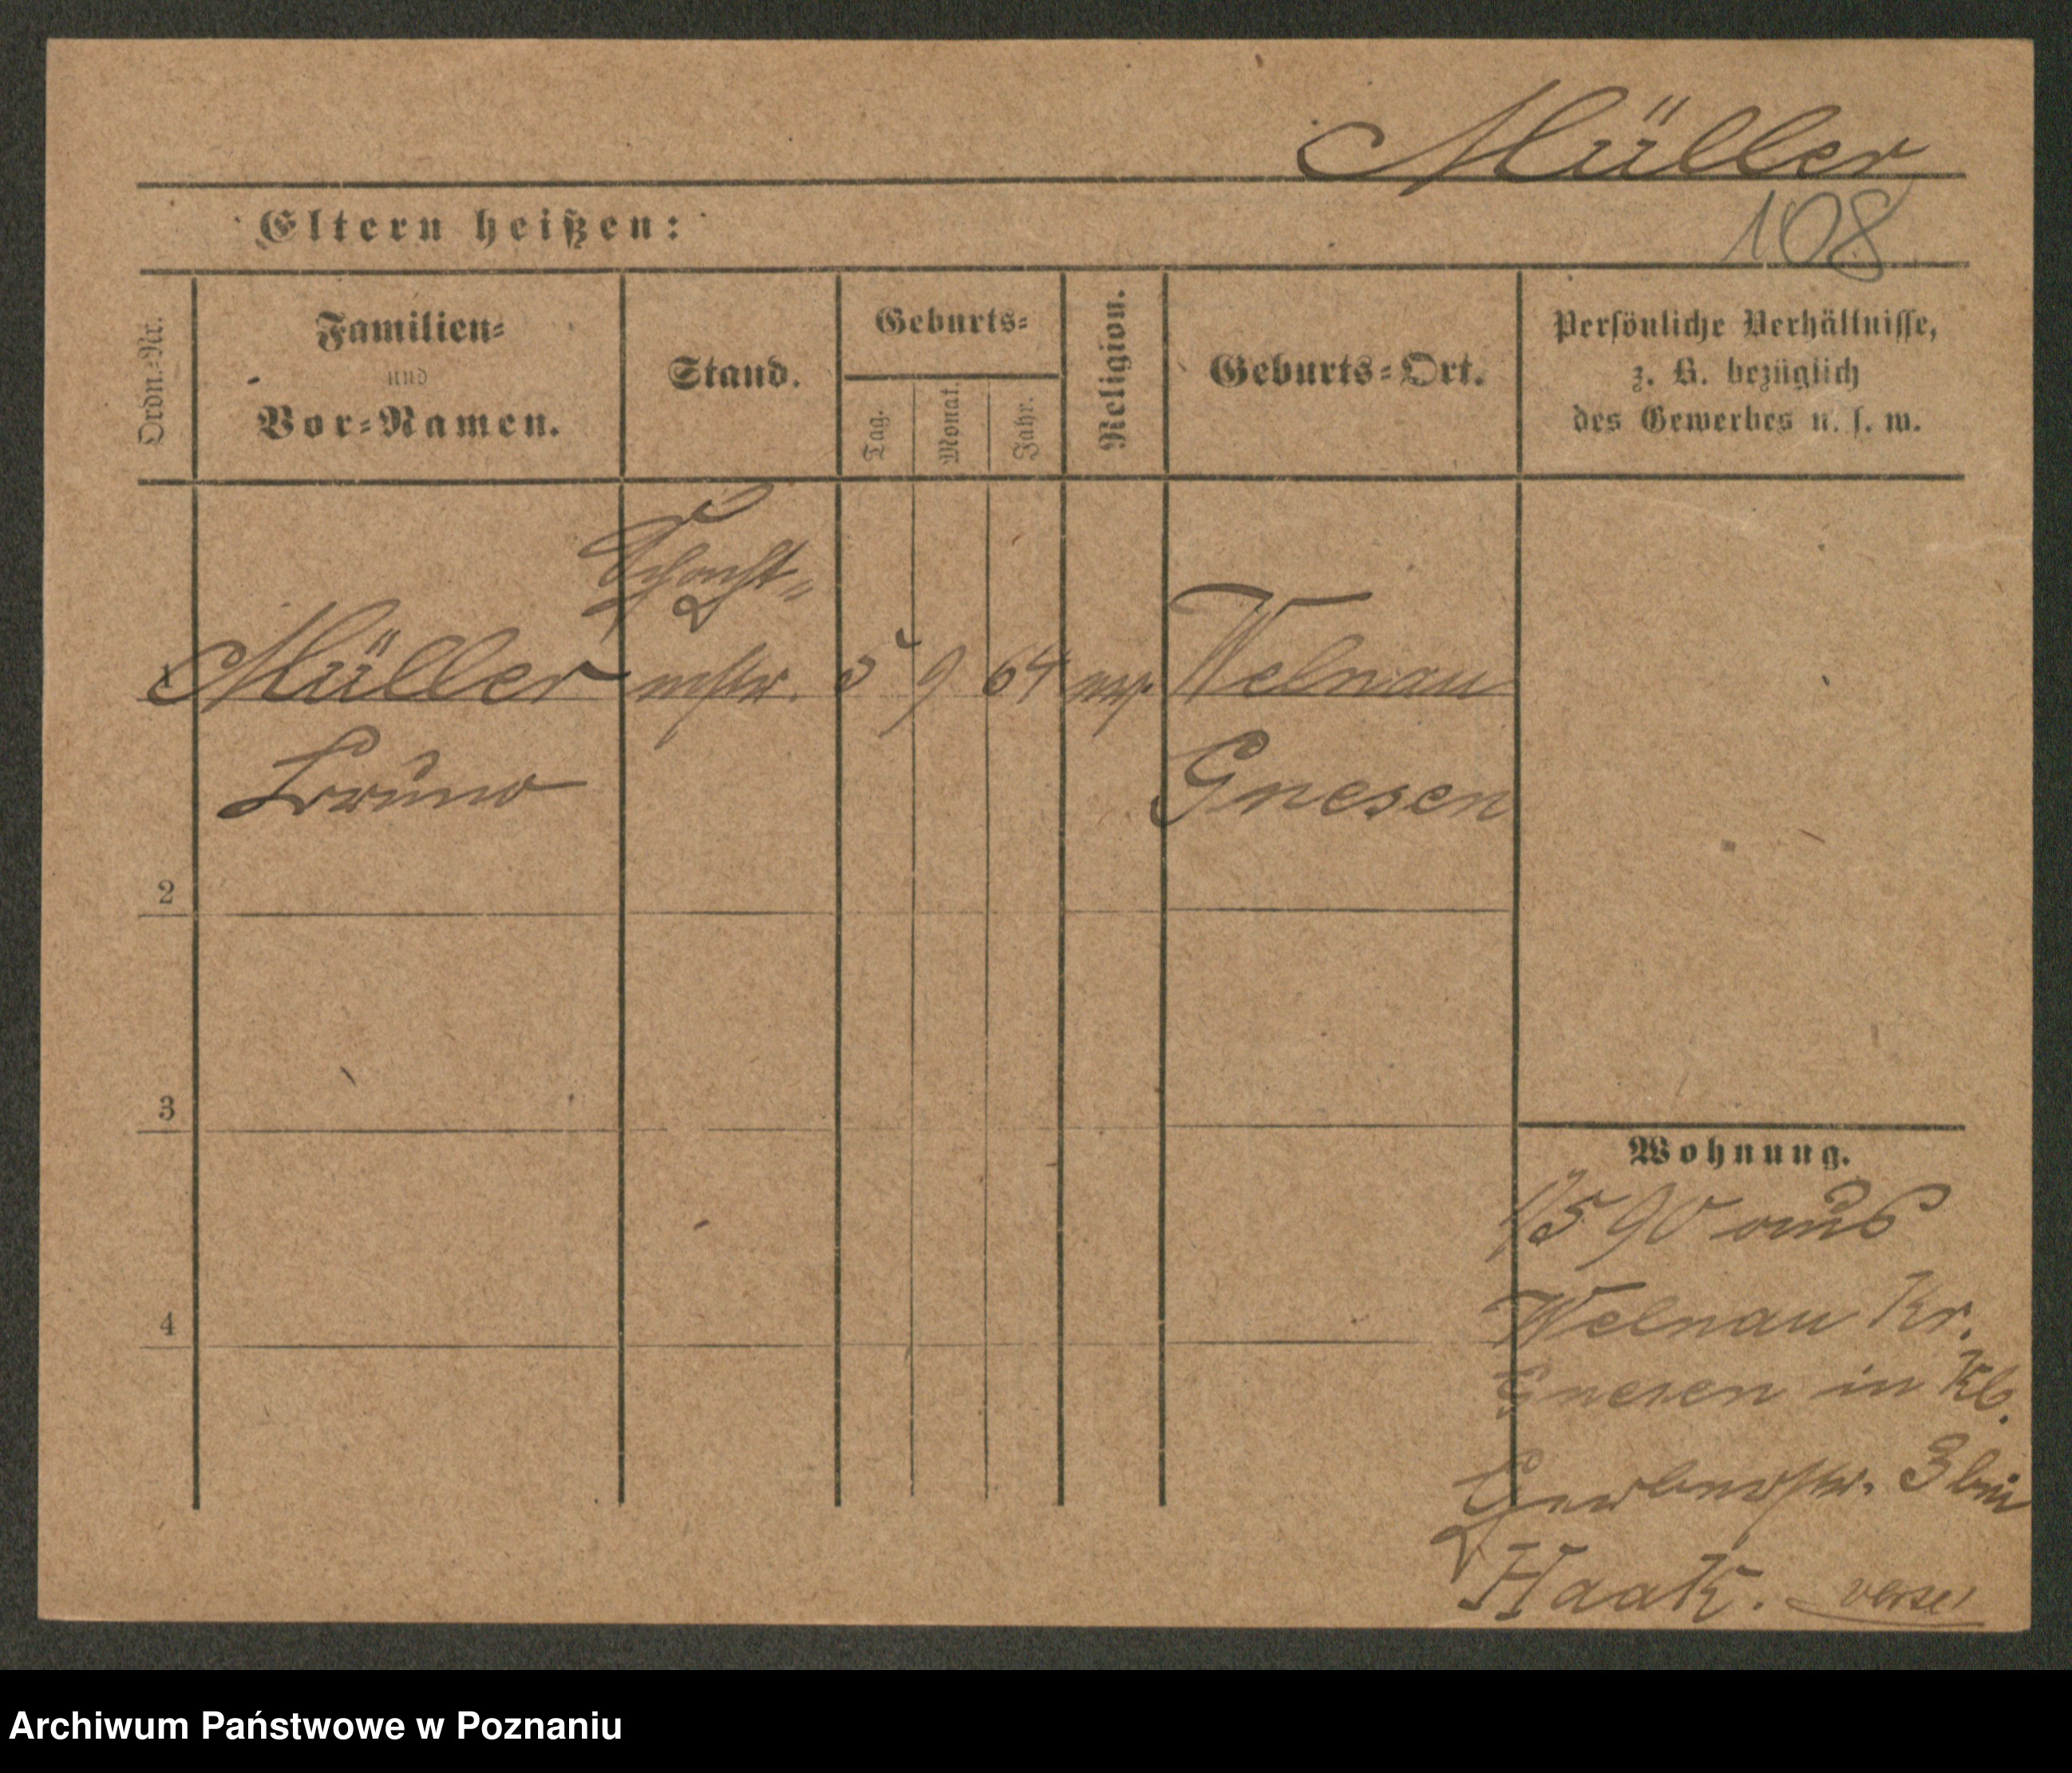 Müller
Eltern heißen:
108
Ordn.-Nr.
Familien-
und
Vor-Namen.
Stand.
Geburts-
Tag.
Monat.
Jahr.
Religion.
Geburts-Ort.
Persönliche Verhältnisse,
z. B. bezüglich
des Gewerbes u. s. w.
Schacht-
1 Müller mstr. 5 9 64 ev. Welnau
Bruno Gnesen
2
3
4
Wohnung.
1/5 90 aus
Welnau Kr.
Gnesen in Kb.
Gerberstr. 3 bei
Haak. verse!
Archiwum Państwowe w Poznaniu